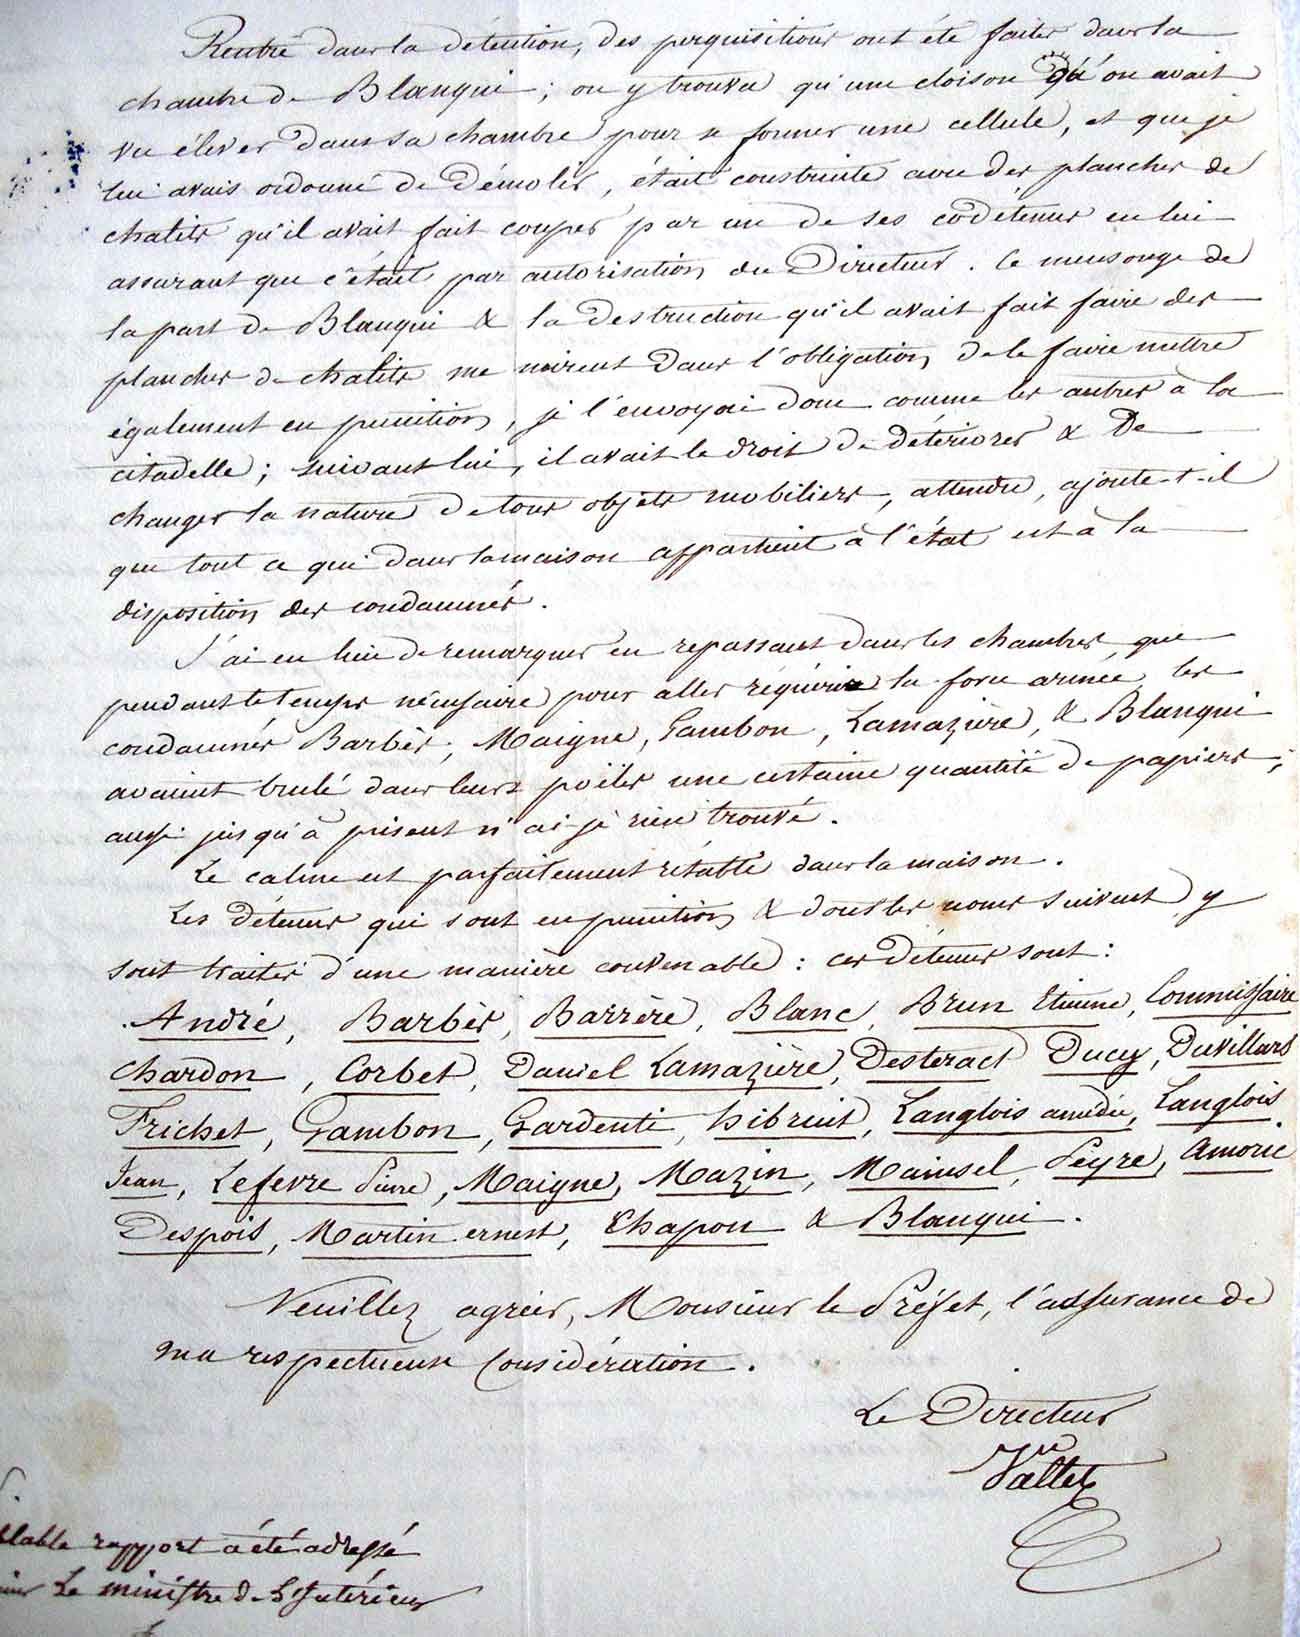 Rentré dans la détention, des perquisitions ont été faites dans la
chambre de Blanqui ; on y trouva qu'une cloison qu'on avait
vu élever dans sa chambre pour se former une cellule, et que je
lui avais ordonné de démolir, était construite avec des planches de
chalits qu'il avait fait couper par un de ses codétenus en lui
assurant que c'était par autorisation du Directeur. Ce mensonge de
la part de Blanqui & la destruction qu'il avait fait faire des
planches de chalits me mirent dans l'obligation de le faire mettre
également en punition, je l'envoyai donc comme les autres à la
citadelle ; suivant lui, il avait le droit de détériorer & de
changer la nature de tous objets mobiliers, attendu, ajoute-t-il
que tout ce qui dans la maison appartient à l'état est à la
disposition des condamnés.
J'ai eu lieu de remarquer en repassant dans les chambres que
pendant le temps nécessaire pour aller réquérir la force armée, les
condamnés Barbès, Maigne, Gambon, Lamazière, & Blanqui
avaient brulé dans leurs poëles une certaine quantité de papiers ;
aussi jusqu'à présent n'ai-je rien trouvé.
Le calme est parfaitement rétabli dans la maison.
Les détenus qui sont en punition & dont les noms suivent y
sont traités d'une manière convenable : ces détenus sont :
André, Barbès, Barrère, Blanc, Brun Etienne, Commissaire
Chardon, Corbet, Daniel Lamazière, Desteract Ducy, Duvillars
Frichet, Gambon, Gardenti, hibruit, Langlois amédée, Langlois
Jean, Lefevre Pierre, Maigne, Mazin, Mainsel, Peyre, Amoric
Despois, Martin ernest, Chapon & Blanqui.
Veuillez agréer, Monsieur le Préfet, l'assurance de
ma respectueuse Considération.
Le Directeur
Vallet
rapport a été adressé
Le ministre de l'Intérieur